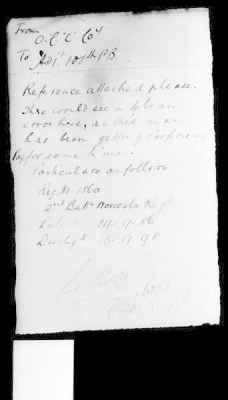 From
O.C. "C" Coy
To Adjt 10th P.B.
Reference attached please.
There would seem to be an
error here, as this man
has been getting Proficiency
Pay for some time.
Particulars as follows
Reg No 1860
2nd Battn Worcester Regt
Enlisted 14.9.86
Dischgd 13.9.98
Capt